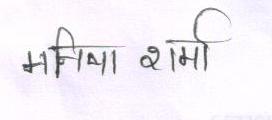 मनिषा शर्मा